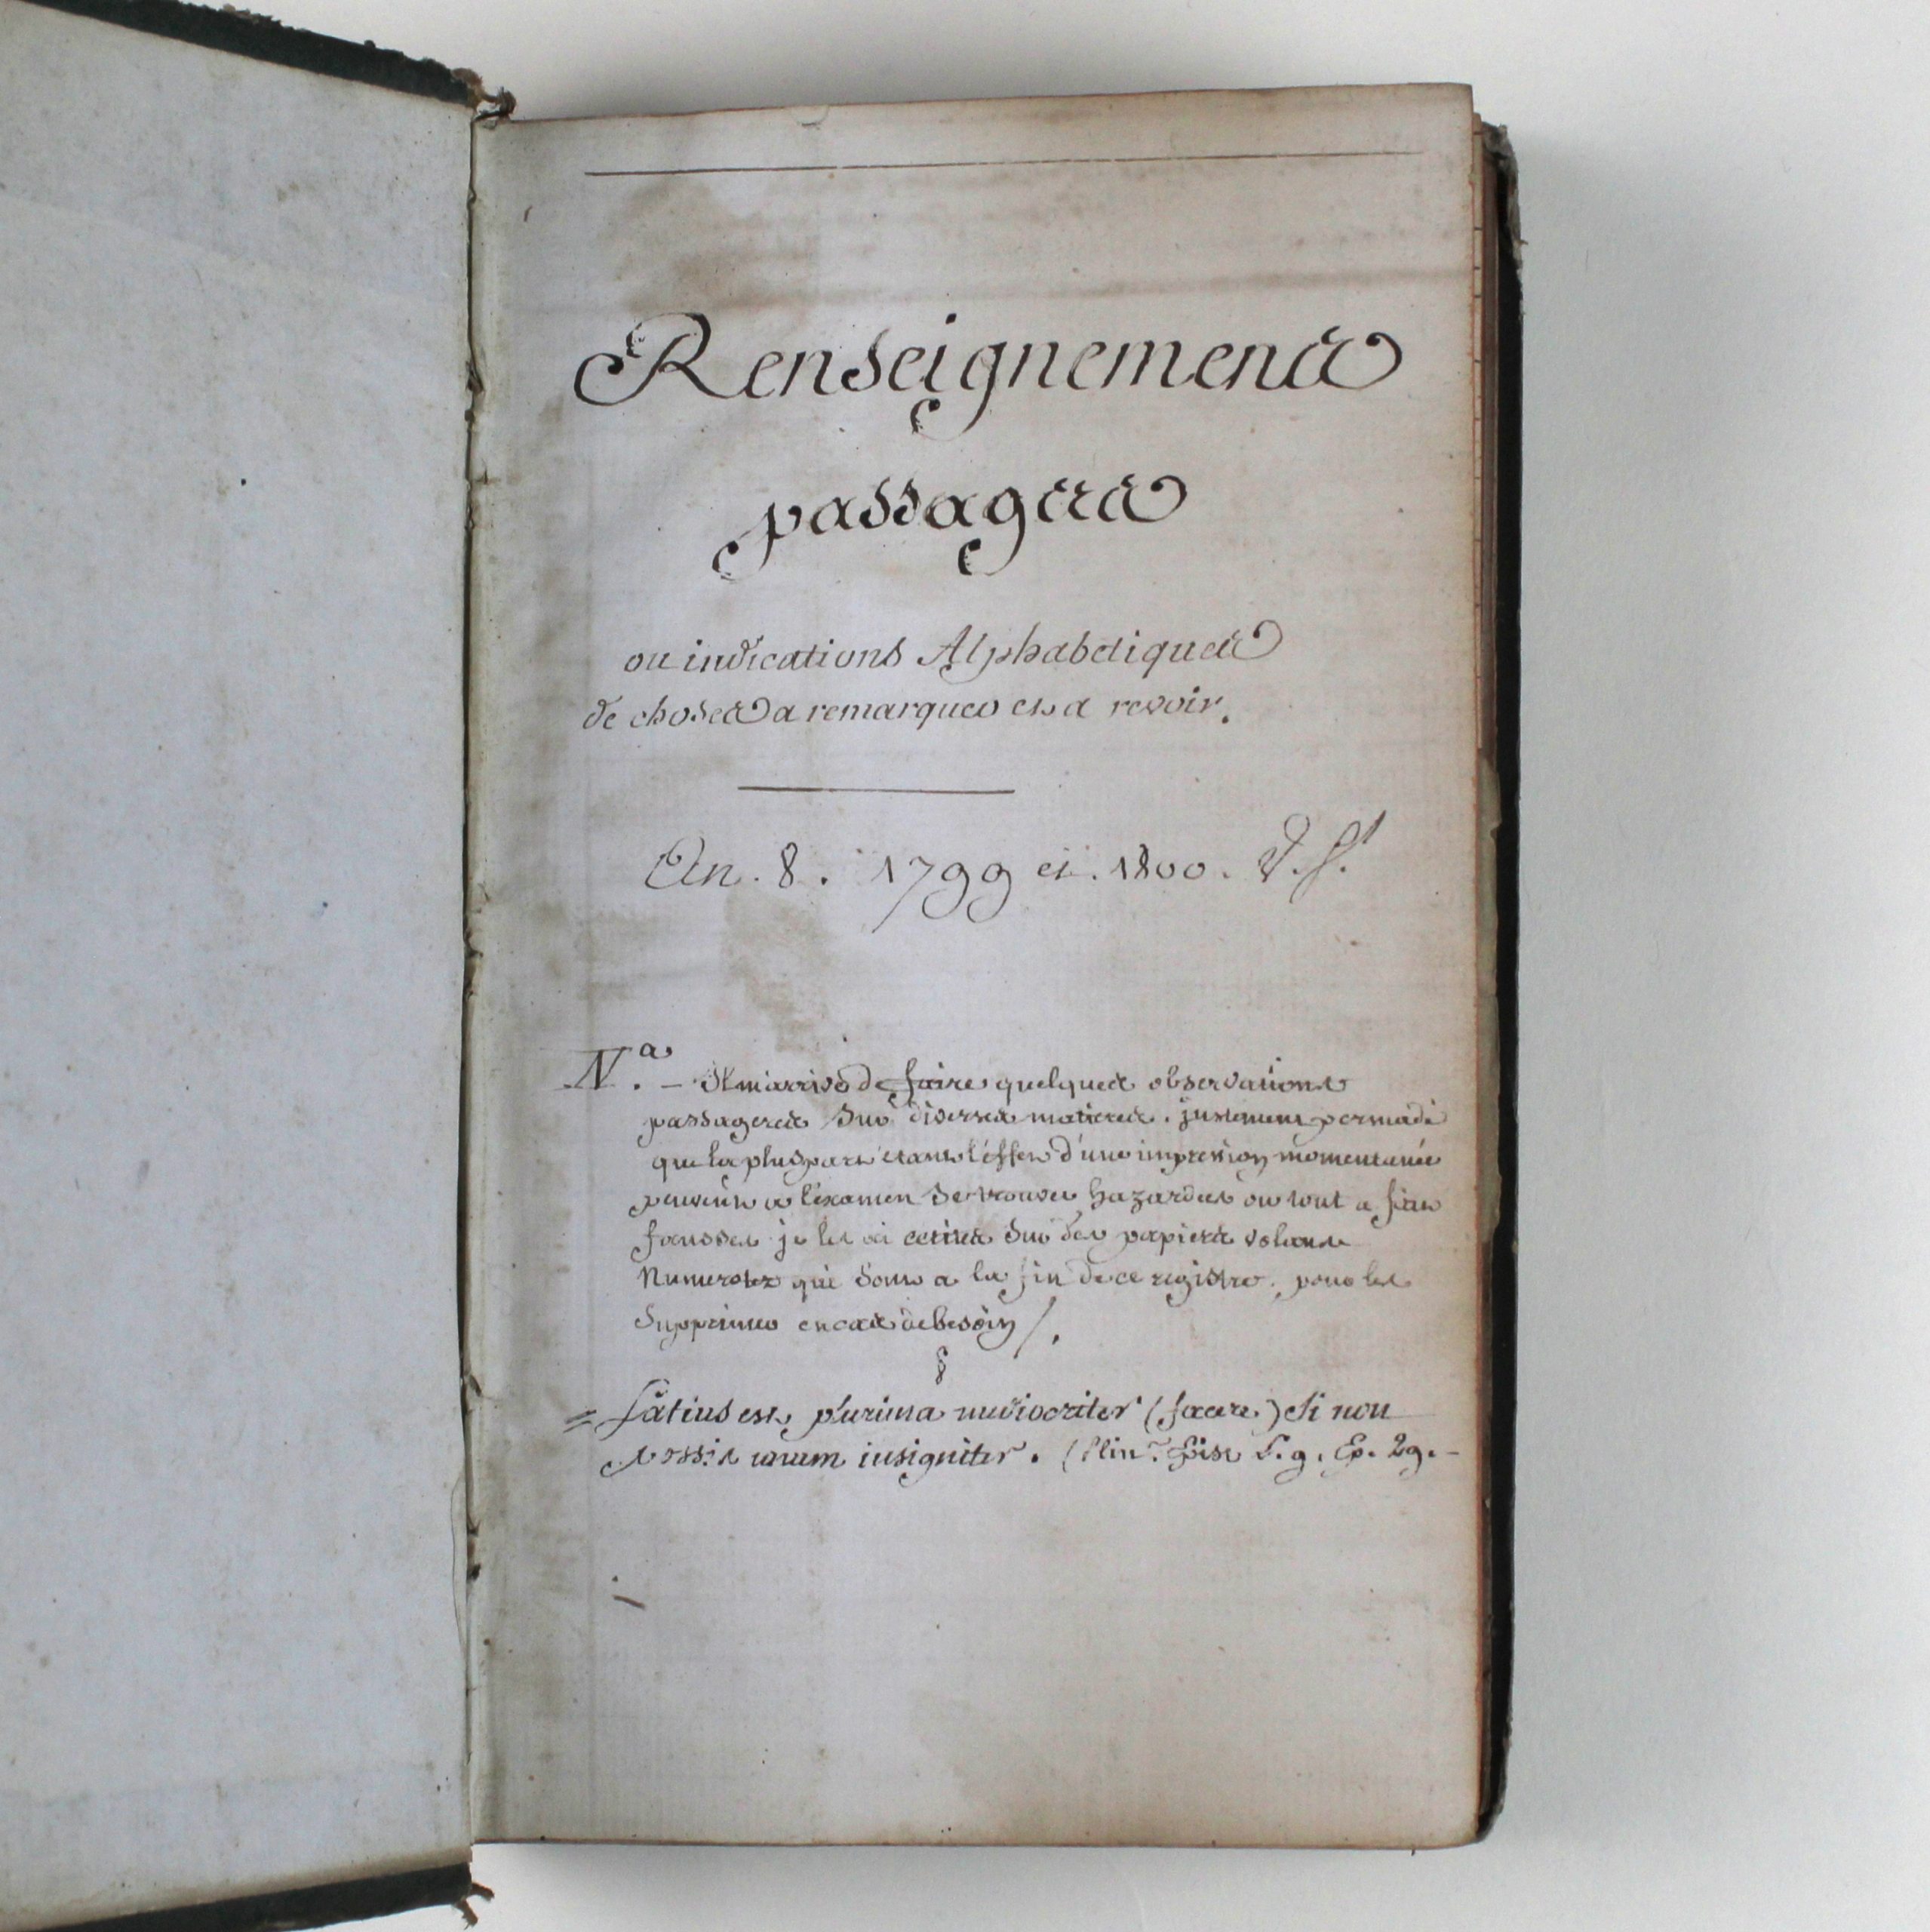 Renseignemens
passagers
ou indications Alphabetiques
de choses a remarquer et a revoir.
An. 8. 1799 et. 1800. V. S.
N.a — Il m'arrive de faire quelques observations
passageres sur diverses matieres. justement persuadé
que la pluspart étant l'effet d'une impression momentanée
peuvent a l'examen se trouver hazardées ou tout a fait
fausses je les ai ecrites sur des papiers volans
Numerotez qui sont a la fin de ce registre. pour les
Supprimer en cas de besoin /.
= Satius est, plurima mediocriter (facere) Si non
possis unum insigniter. (Plin. Epist L. 9. Ep. 29. -